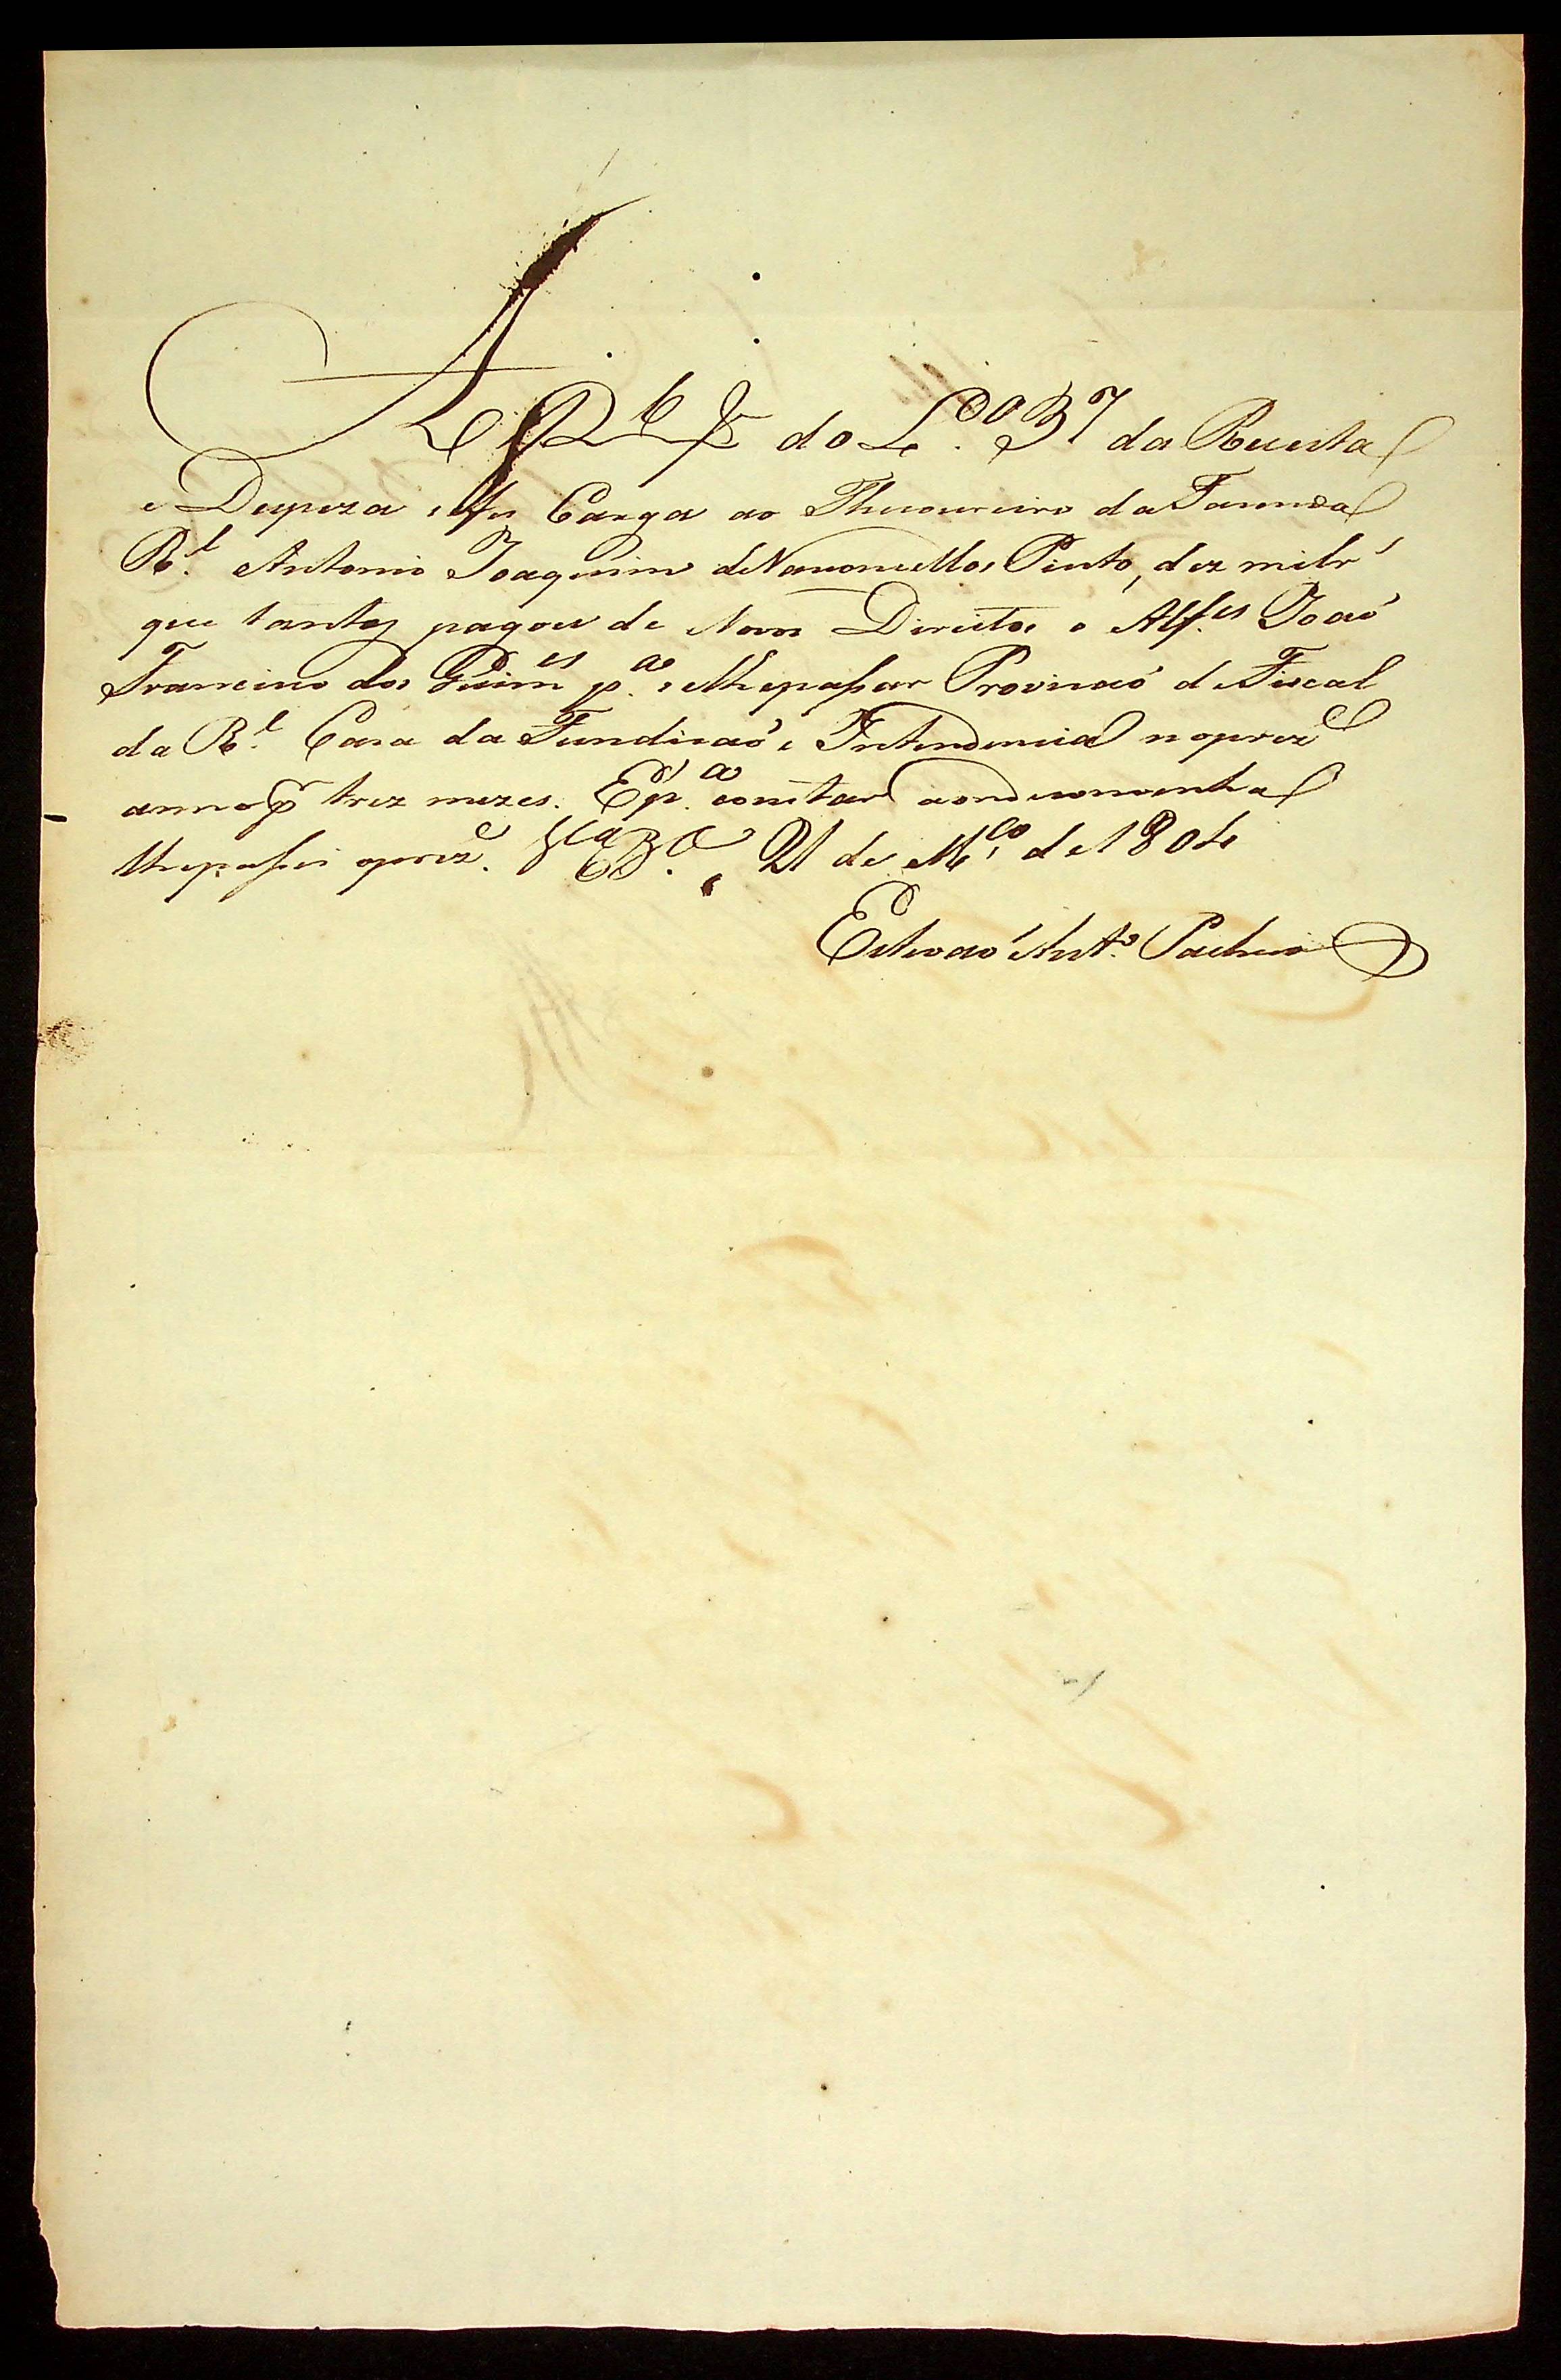 A f do L.º 3º da Receita
e Despeza se fes Carga ao Thezoureiro da Fazenda
R.l Antonio Joaquim de Vasconcellos Pinto, dez mil r.s
que tantos pagou de Novos Direitos o Alf.es Joaõ
Francisco dos Guim.es p.a se lhe passar Provizaõ de Fiscal
da R.l Caza da Fundicaõ e Intendencia no prez.e
anno p.r trez mezes. E p.a constar aonde convenha
lhe passei o prez.e. 21 de M.ço de 1804
Estevaõ Ant.º Pacheco